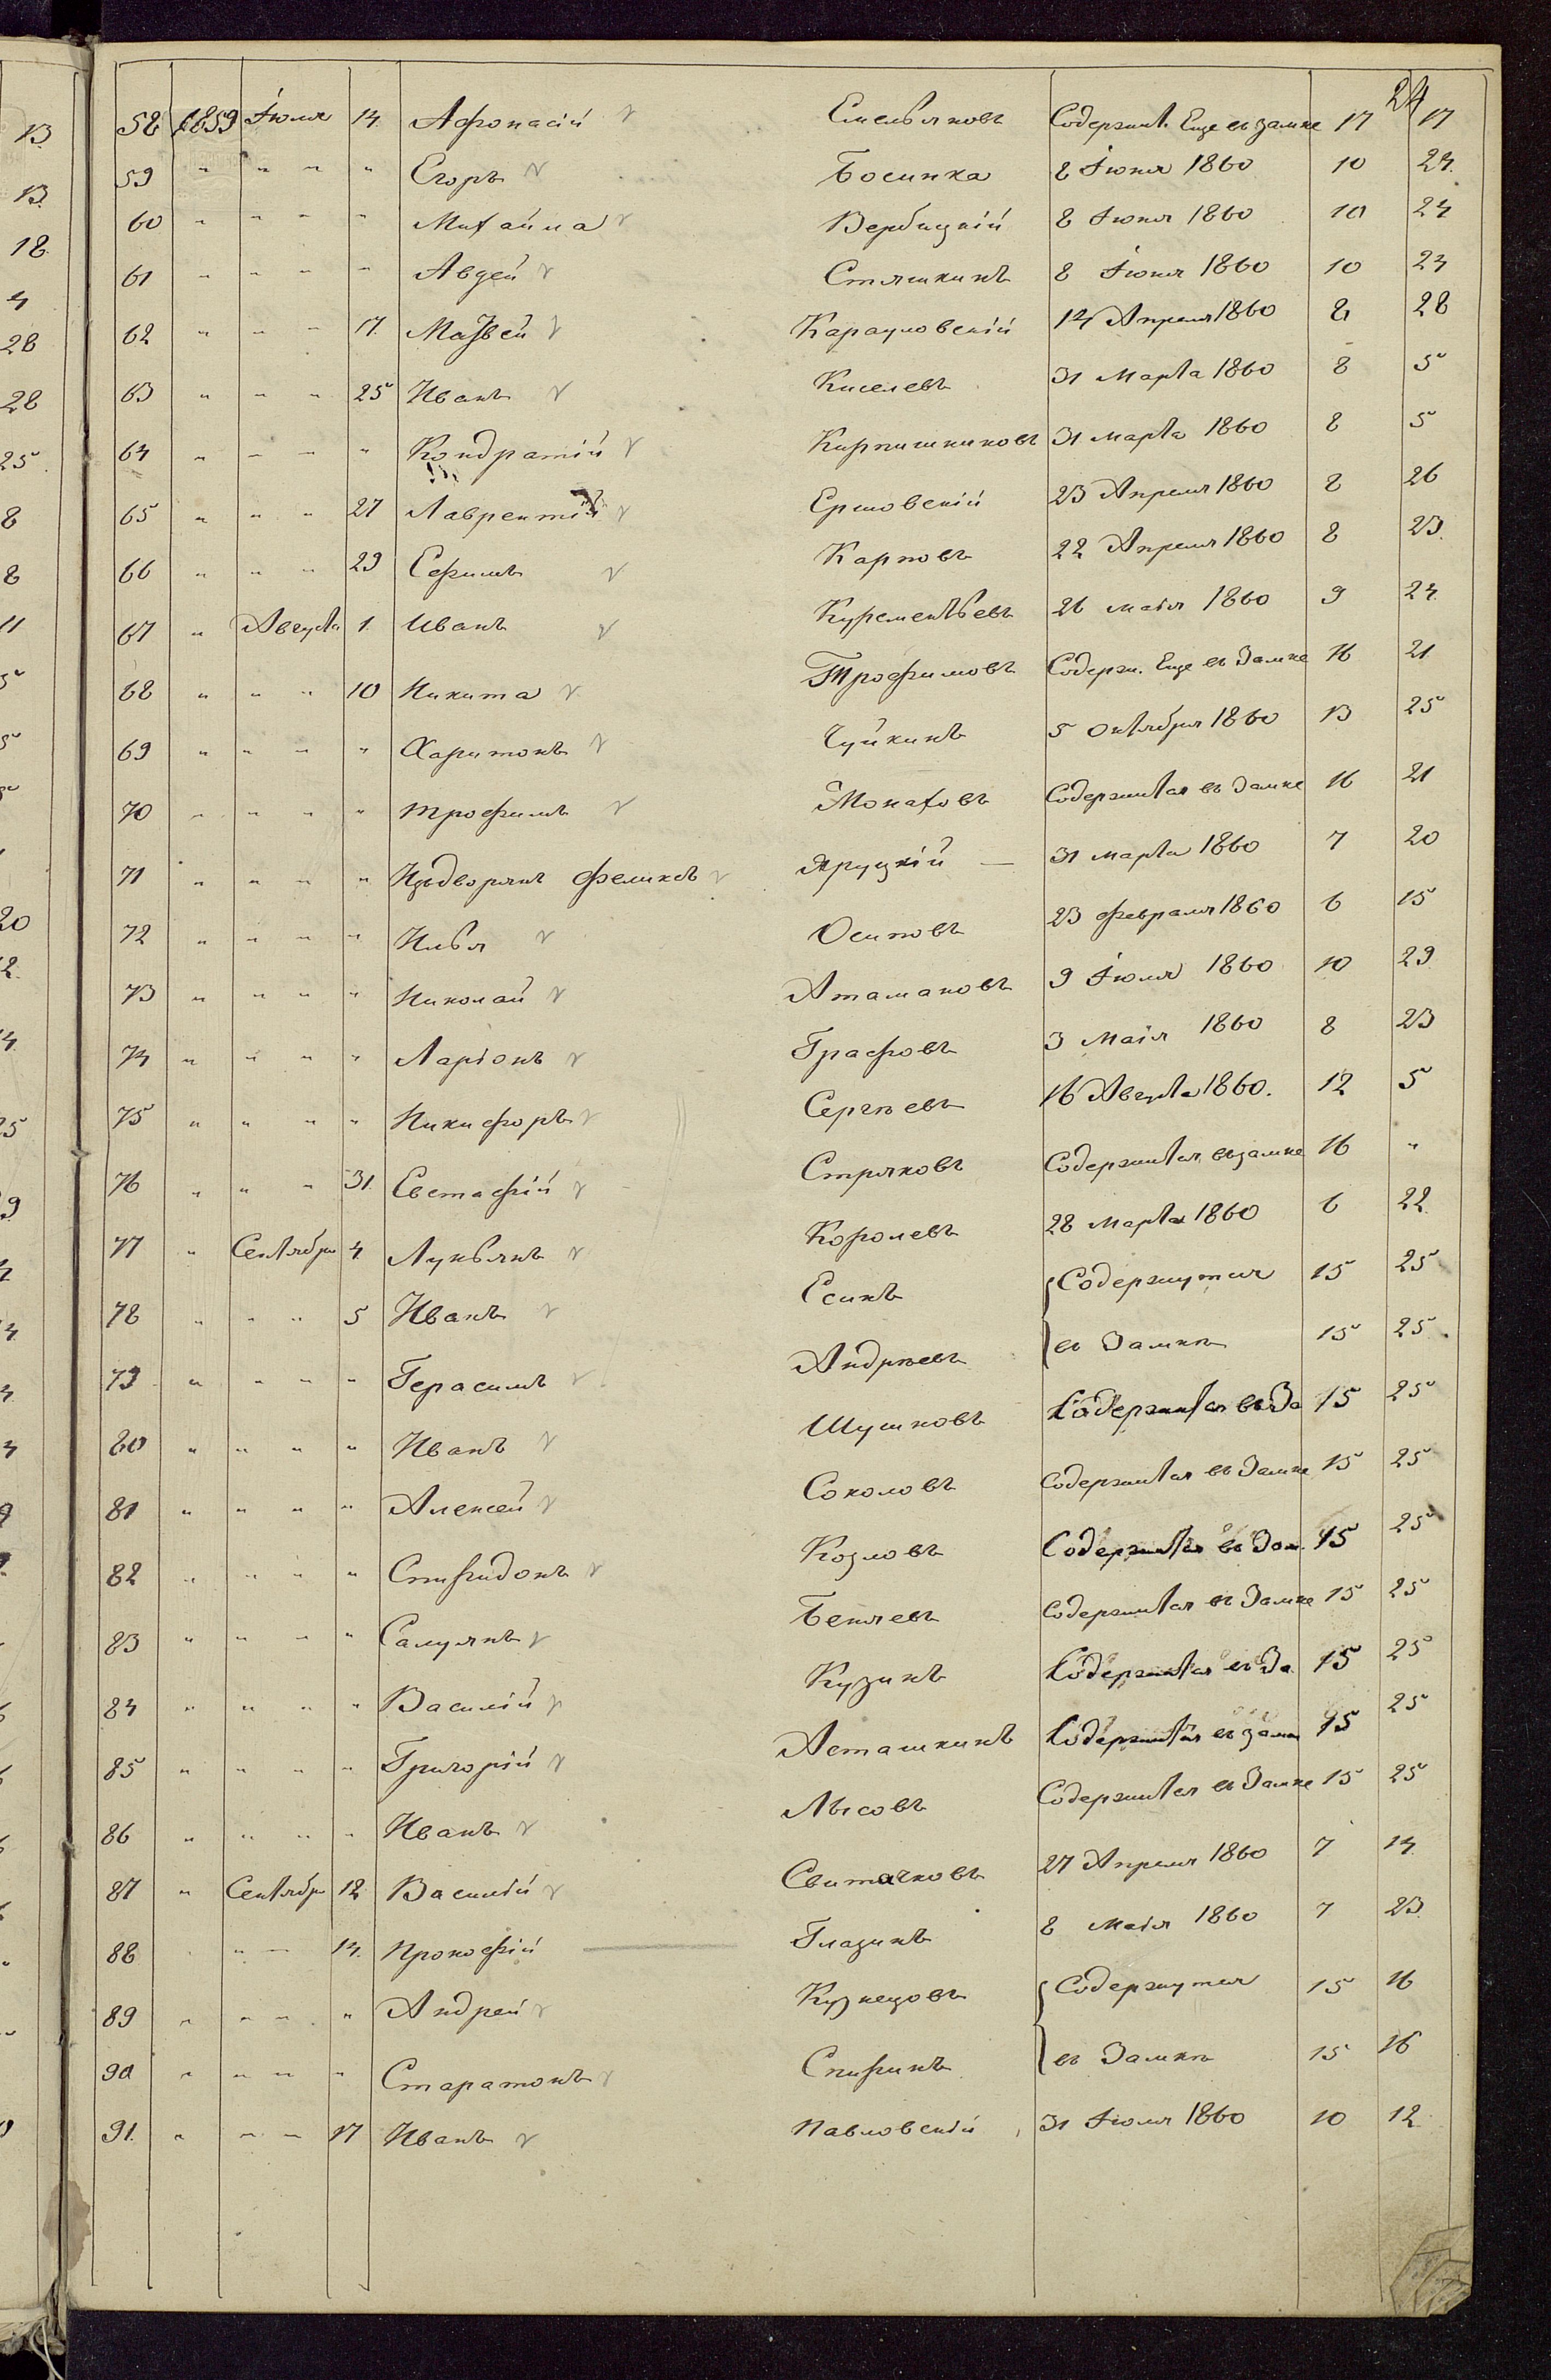 24
58 1859 Июля 14 Афонасій Емельяновъ Содержит. Еще въ замке 17 17
59 " " " " Егоръ Босинка 8 Іюня 1860 10 24
60 " " " " Михайла Вербицкій 8 Іюня 1860 10 24
61 " " " " Авдей Стяшкинъ 8 Іюня 1860 10 24
62 " " " 17 Матвей Карауловскій 14 Апреля 1860 8 28
63 " " " 25 Иванъ Киселевъ 31 Марта 1860 8 5
64 " " " " Кондратій Кирпишниковъ 31 Марта 1860 8 5
65 " " " 27 Лаврентій Ершовскій 23 Апреля 1860 8 26
66 " " " 29 Ефимъ Карповъ 22 Апреля 1860 8 23
67 " Августа 1 Иванъ 26 Маія 1860 9 24
68 " " " 10 Никита Трофимовъ Содерж. Еще въ Замке 16 21
69 " " " " Харитонъ Чуйкинъ 5 Октября 1860 13 25
70 " " " " Трофимъ Монаховъ Содержится въ Замке 16 21
71 " " " " Изъ дворянъ Феликсъ Яруцкій — 31 Марта 1860 7 20
72 " " " " Илья Осиповъ 23 Февраля 1860 6 15
73 " " " " Николай Атамановъ 9 Іюля 1860 10 29
74 " " " " Ларіонъ Графовъ 3 Маія 1860 8 23
75 " " " " Никифоръ Сергѣевъ 16 Августа 1860. 12 5
76 " " " 31 Евстафій Стряковъ Содержится въ замке 16 "
77 " Сентября 4 Лукьянъ Королевъ 28 Марта 1860 6 22
78 " " " 5 Иванъ Есинъ Содержутся 15 25
79 " " " " Герасимъ Андрѣевъ въ Замкѣ 15 25
80 " " " " Иванъ Шушковъ Содержится въ За 15 25
81 " " " " Алексей Соколовъ Содержится въ Замке 15 25
82 " " " " Спиридонъ Козловъ Содержится въ Зам. 15 25
83 " " " " Самулянъ Бекляевъ Содержится въ Замке 15 25
84 " " " " Василій Кузинъ Содержится въ За 15 25
85 " " " " Григорій Асташкинъ Содержится въ замк 15 25
86 " " " " Иванъ Лысовъ Содержится въ Замке 15 25
87 " Сентября 12 Василій Свиточковъ 27 Апреля 1860 7 14
88 " " " 14 Прокофій Глазинъ 8 Маія 1860 7 23
89 " " " " Андрей Кузнецовъ Содержутся 15 16
90 " " " " Старатонъ Спиринъ въ Замкѣ 15 16
91 " " " 17 Иванъ Павловскій 31 Іюля 1860 10 12